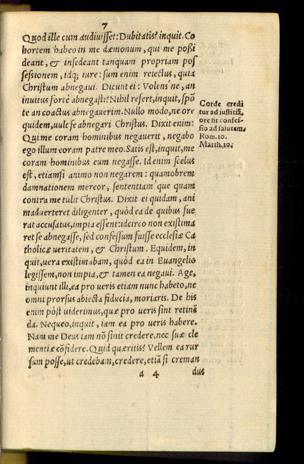 7
Quod ille cum audiuisset: Dubitatis? inquit. Co
hortem habeo in me dæmonum, qui me poßi
deant, & insedeant tanquam propriam pos
seßionem, idq; iure: sum enim reiectus, quia
Christum abnegaui. Dicunt ei: Volens ne, an
inuitus forte abnegasti? Nihil refert, inquit, spō
te an coactus abnegauerim. Nullo modo, ne ore
quidem, uult se abnegari Christus. Dixit enim:
Qui me coram hominibus negauerit, negabo
ego illum coram patre meo. Satis est, inquit, me
coram hominibus eum negasse. Id enim scelus
est, etiamsi animo non negarem: quamobrem
damnationem mereor, sententiam que quam
contra me tulit Christus. Dixit ei quidam, ani
maduerteret diligenter, quòd ea de quibus fue
rat accusatus, impia essent: idcirco non existima
ret se abnegasse, sed confessum fuisse ecclesiæ Ca
tholicæ ueritatem, & Christum. Equidem, in
quit, uera existimabam, quòd ea in Euangelio
legissem, non impia, & tamen ea negaui. Age,
inquiunt illi, ea pro ueris etiam nunc habeto, ne
omni prorsus abiecta fiducia, moriaris. De his
enim pòst uiderimus, quæ pro ueris sint retinē
da. Nequeo, inquit, tam ea pro ueris habere.
Nam me Deus iam nō sinit credere, nec suæ cle
mentiæ cōfidere. Quid quæritis? Vellem ea rur
sum posse, ut credebam, credere, etiā si creman
a 4 dus
Corde credi
tur ad iustitiā,
ore fit confes-
sio ad salutem
Rom. 10.
Matth. 10.